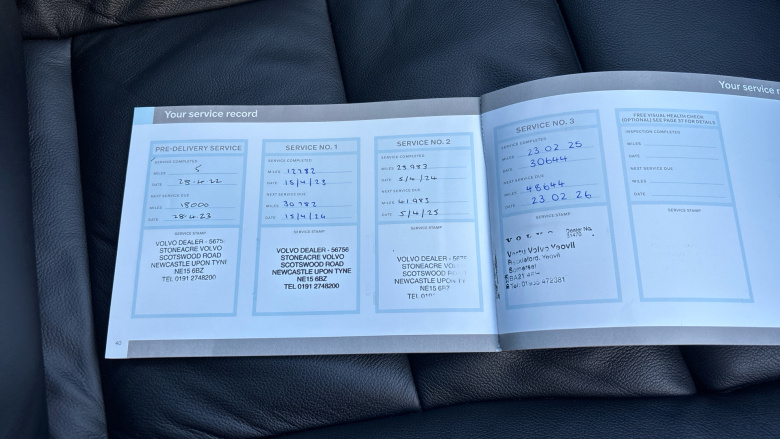 Your service record
PRE-DELIVERY SERVICE
SERVICE COMPLETED
MILES 5
DATE 28.4.22
NEXT SERVICE DUE
MILES 18000
DATE 28.4.23
SERVICE STAMP
VOLVO DEALER - 5675
STONEACRE VOLVO
SCOTSWOOD ROAD
NEWCASTLE UPON TYNE
NE15 6BZ
TEL 0191 2748200
40
SERVICE NO. 1
SERVICE COMPLETED
MILES 12782
DATE 15/4/23
NEXT SERVICE DUE
MILES 30782
DATE 15/4/24
SERVICE STAMP
VOLVO DEALER - 56756
STONEACRE VOLVO
SCOTSWOOD ROAD
NEWCASTLE UPON TYNE
NE15 6BZ
TEL 0191 2748200
SERVICE NO. 2
SERVICE COMPLETED
MILES 23.983
DATE 5/4/24
NEXT SERVICE DUE
MILES 41.983
DATE 5/4/25
SERVICE STAMP
VOLVO DEALER - 567
STONEACRE VOLV
SCOTSWOOD ROAD
NEWCASTLE UPON TY
NE15 6BZ
TEL 019
Your service r
SERVICE NO. 3
SERVICE COMPLETED
MILES 23 02 25
DATE 30644
NEXT SERVICE DUE
MILES 48644
DATE 23 02 26
SERVICE STAMP
Dealer No.
Volvo Yeovil
Yeovil
Somerset
BA21
Tel.
FREE VISUAL HEALTH CHECK
(OPTIONAL) SEE PAGE 37 FOR DETAILS
INSPECTION COMPLETED
MILES
DATE
NEXT SERVICE DUE
MILES
DATE
SERVICE STAMP